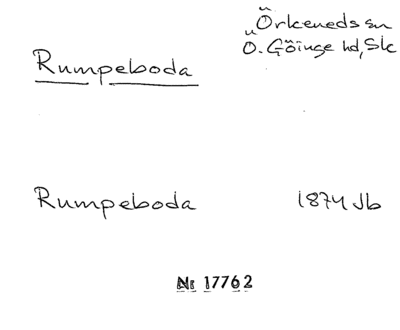 Örkeneds sn
Rumpeboda
Ö. Göinge hd, Sk
Rumpeboda
1874 Jb
Nr 17762